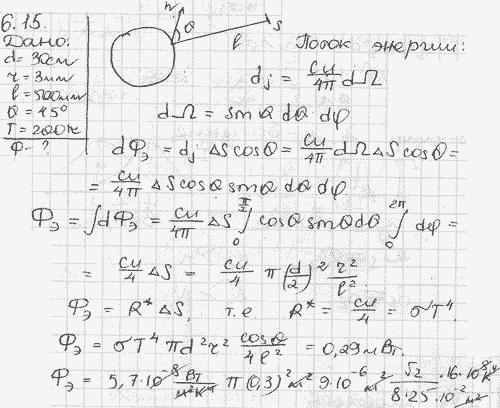 6.15.
Дано:
d= 30см
r= 3мм
l= 500мм
θ = 45°
Ф-?
n
θ
l
S
Поток энергии:
dj = cu/4π dΩ
dΩ = sinθ dθ dφ
dФэ = dj ΔS cosθ = cu/4π dΩ ΔS cosθ =
= cu/4π ΔS cosθ sinθ dθ dφ
Фэ = ∫dФэ = cu/4π ΔS ∫₀^(π/2) cosθ sinθ dθ ∫₀^(2π) dφ =
= cu/4 ΔS = cu/4 π (d/2)² r²/l².
Фэ = R* ΔS, т.е R* = cu/4 = σT⁴.
Фэ = σT⁴ πd²r² cosθ/4l² = 0,29мВт.
Фэ = 5,7·10⁻⁸ Вт/м²К⁴ π(0,3)² м² 9·10⁻⁶ м² √2/8·25·10⁻² м² ·16·10⁸ К⁴